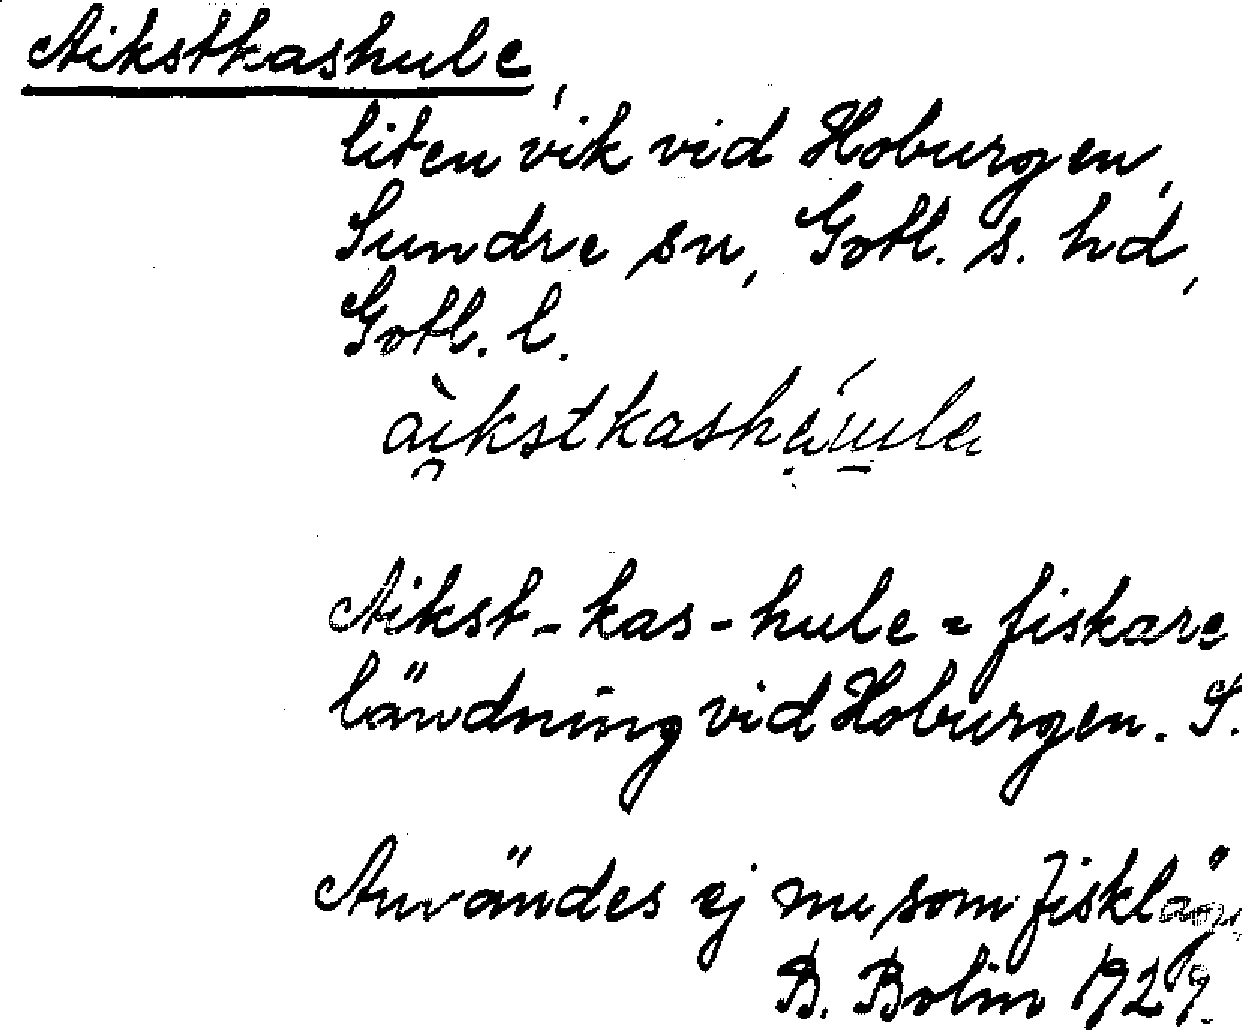 Aikstkashule,
liten vik vid Hoburgen,
Sundre sn, Gotl. s. hd,
Gotl. l.
Aikst-kas-hule = fiskare
ländning vid Hoburgen. S.
Användes ej nu som fiskläge
B. Bolin 1929.